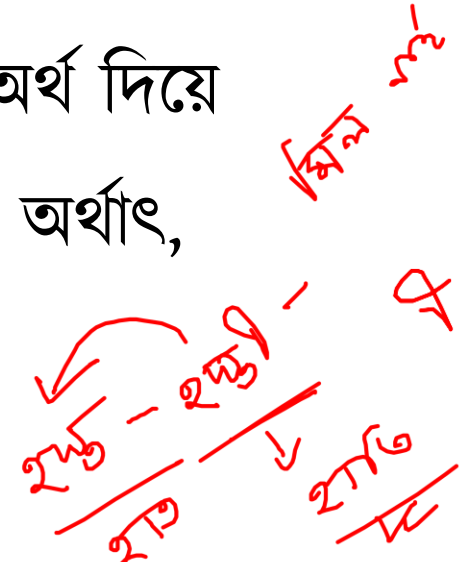 অর্থ দিয়ে
অর্থাৎ,
মিল নেই
হস্ত - হস্তী -
হাত
হাতি